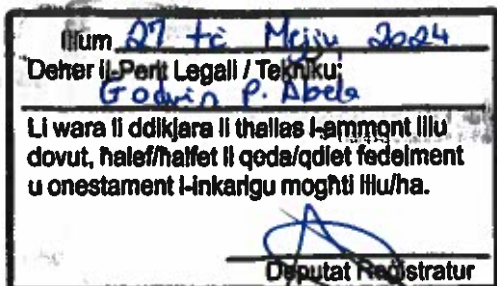 Illum 27 ta' Mejju 2024
Deher il-Perit Legali / Tekniku;
Godwin P. Abela
Li wara li ddikjara li thallas l-ammont lilu
dovut, ħalef/ħalfet li qeda/qdiet fedelment
u onestament l-inkarigu mogħti lilu/ha.
Deputat Reġistratur